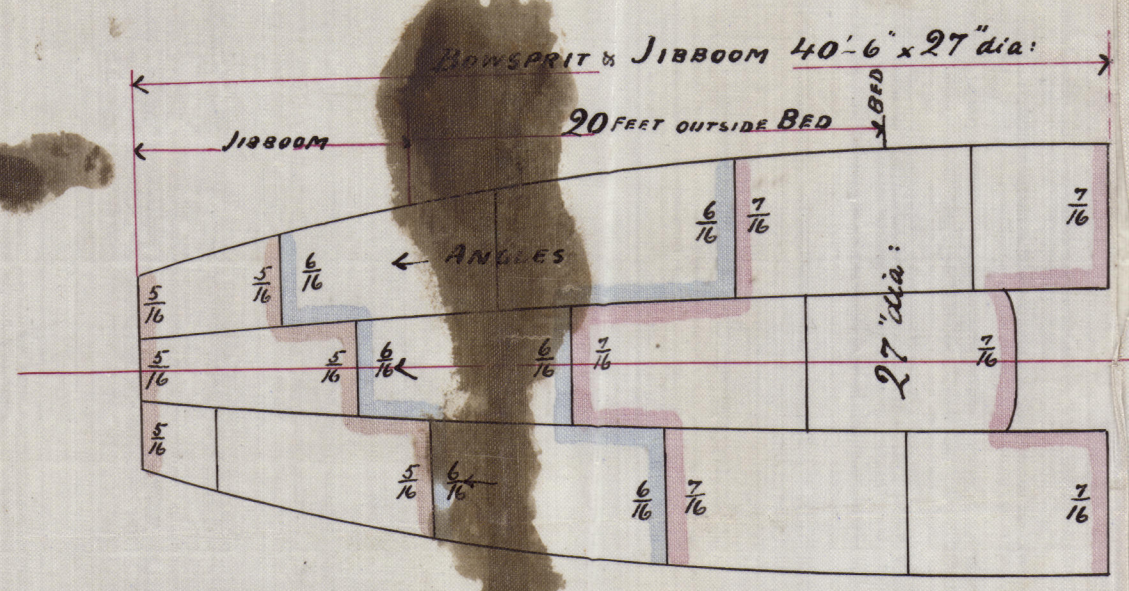 BOWSPRIT & JIBBOOM 40'-6" x 27" dia:
BED
JIBBOOM
20 FEET OUTSIDE BED
6/16 7/16 7/16
5/16 6/16 ← ANGLES
5/16
27" dia:
5/16 5/16 6/16 ← 6/16 7/16 7/16
5/16
5/16 6/16 ← 6/16 7/16 7/16